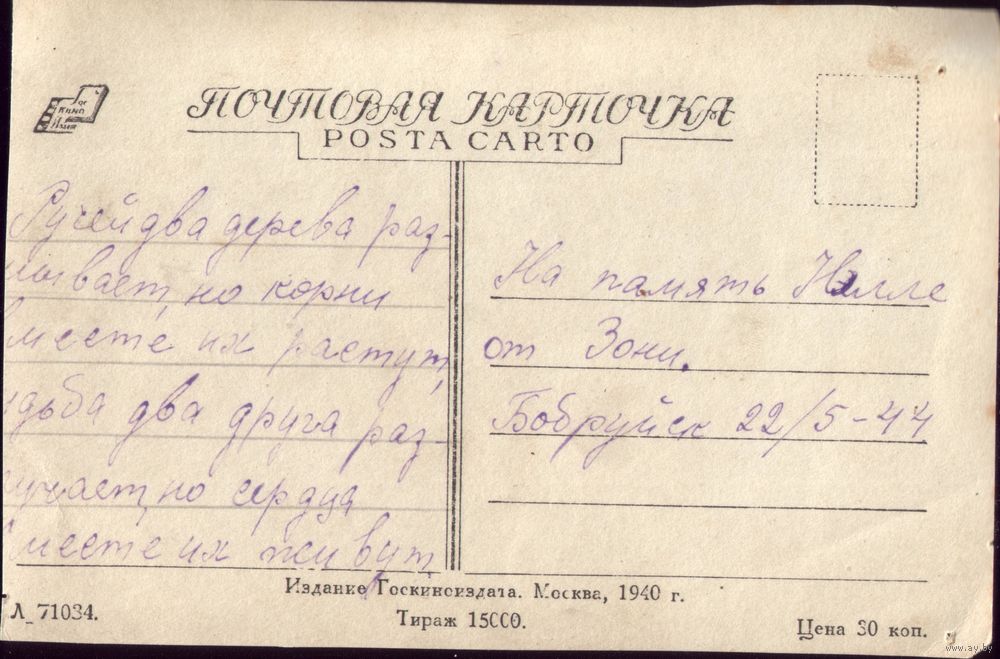 ПОЧТОВАЯ КАРТОЧКА
POSTA CARTO
Ручей два дерева раз-
мывает, но корни
вместе их растут,
удьба два друга раз-
лучает, но сердца
вместе их живут
На память Нелле
от Зони.
Бобруйск 22/5-44
Издание Госкиноиздата. Москва, 1940 г.
Л_71034.
Тираж 15000.
Цена 30 коп.
www.ay.by